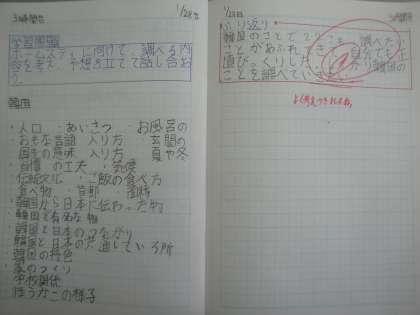 3時間目
1/28㊍
学習問題
ホームステイに向けて、調べる内
容を考え、予想を立てて話し合お
う。
韓国
・人口 ・あいさつ ・お風呂の
・おもな言語 入り方 ・玄関の
・国旗の意味 入り方 ・夏や冬
・自慢 の工夫 ・気候
・伝統文化 ・ご飯の食べ方
・食べ物 ・首都 ・面積
・韓国から日本に伝わった物
・韓国と有名な物
・韓国と日本のつながり
・韓国と日本の共通している所
・韓国の特色
・家のつくり
・学校関係
・陸うなこの様子
1/28㊍
3時間目
ふり返り
韓国のことで 調べたい
ことがあふれてきて、自分でも
びっくりした。 韓国の
ことを調べていきたい。
よく考えつきましたね。